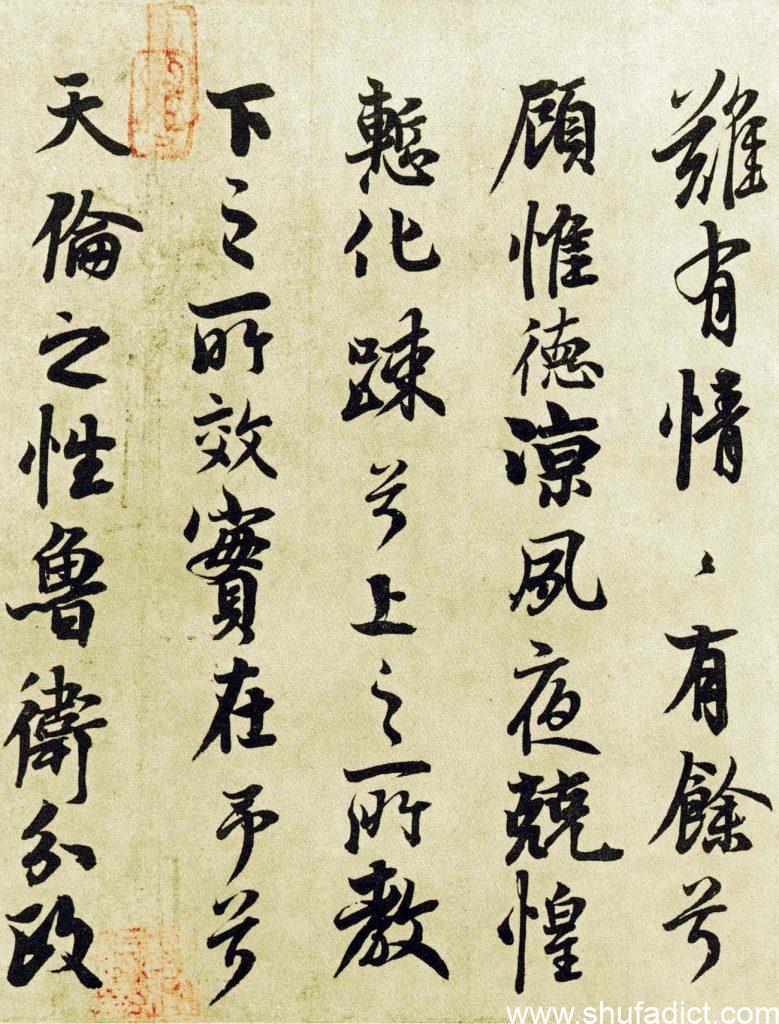 難有情〻有餘兮
顧惟德涼夙夜兢惶
慙化踈兮上之所教
下之所效實在予兮
天倫之性魯衛分政
www.shufadict.com